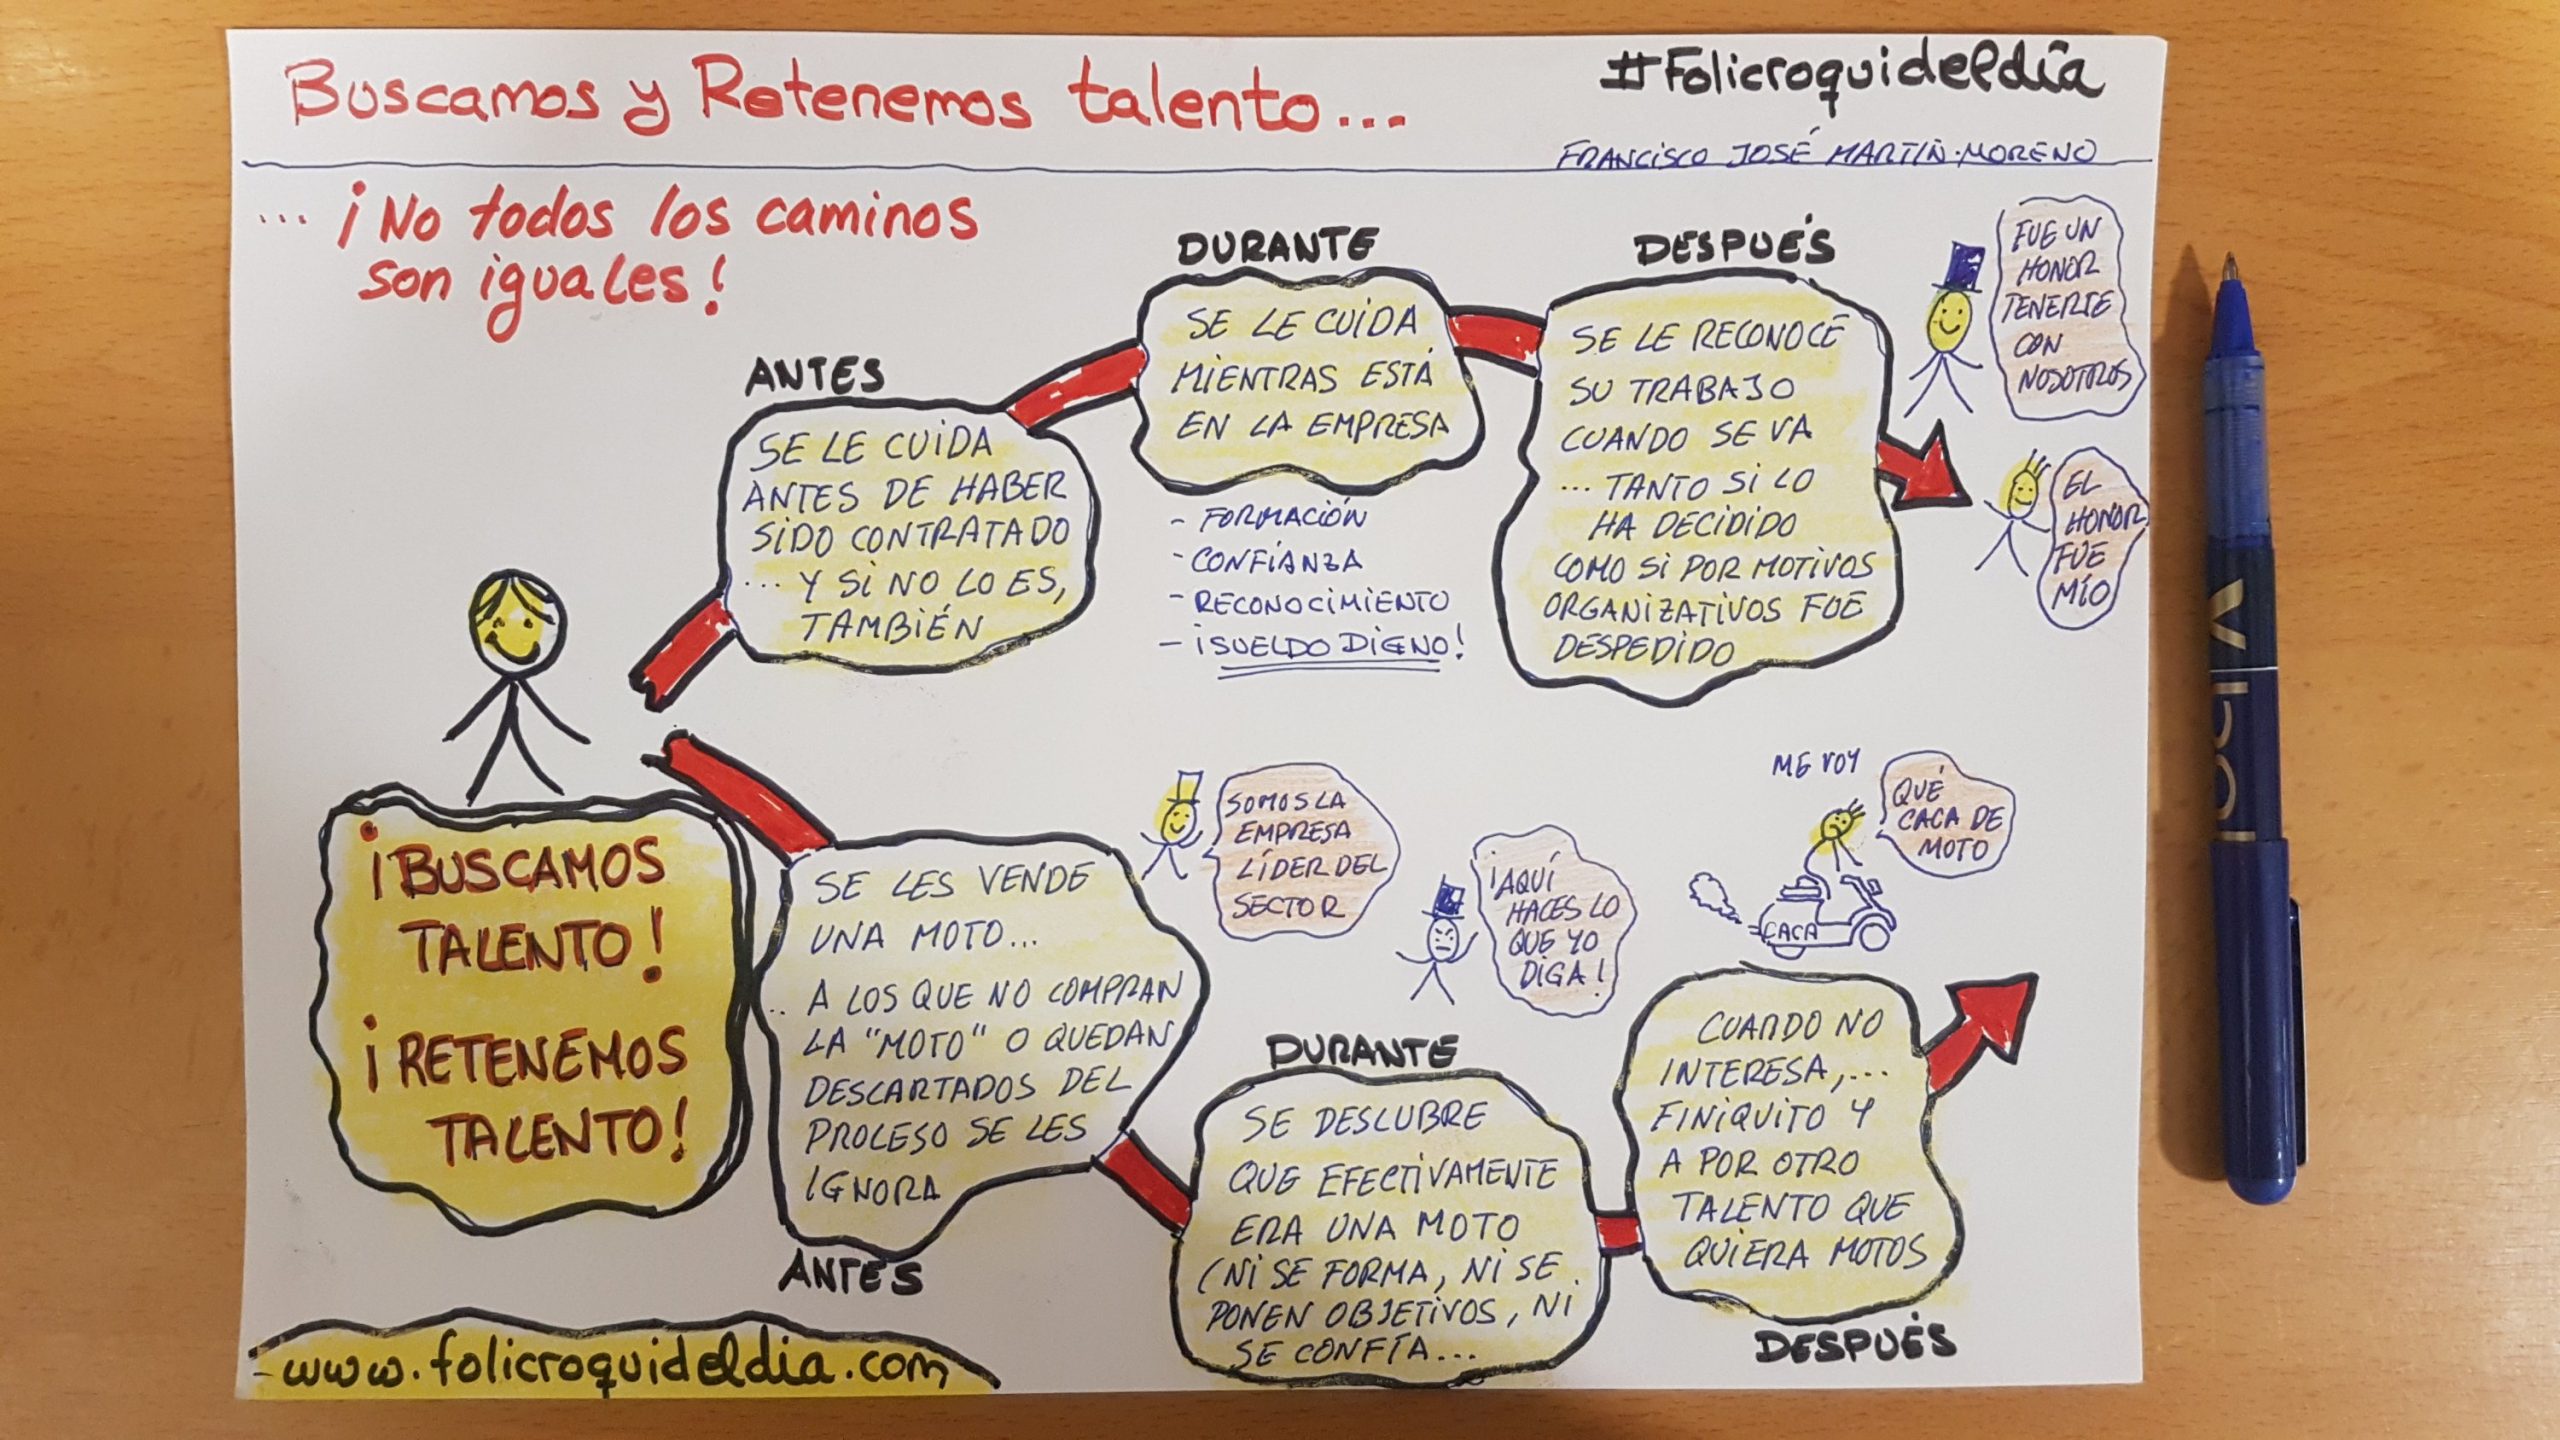 Buscamos y Retenemos talento...
#Folicroquideldía
FRANCISCO JOSÉ MARTÍN-MORENO
... ¡No todos los caminos
son iguales!
ANTES
SE LE CUIDA
ANTES DE HABER
SIDO CONTRATADO
... Y SI NO LO ES,
TAMBIÉN
DURANTE
SE LE CUIDA
MIENTRAS ESTÁ
EN LA EMPRESA
- FORMACIÓN
- CONFIANZA
- RECONOCIMIENTO
- ¡SUELDO DIGNO!
DESPUÉS
SE LE RECONOCE
SU TRABAJO
CUANDO SE VA
... TANTO SI LO
HA DECIDIDO
COMO SI POR MOTIVOS
ORGANIZATIVOS FUE
DESPEDIDO
FUE UN
HONOR
TENERTE
CON
NOSOTROS
EL
HONOR
FUE
MÍO
¡BUSCAMOS
TALENTO!
¡RETENEMOS
TALENTO!
SE LES VENDE
UNA MOTO...
.. A LOS QUE NO COMPRAN
LA "MOTO" O QUEDAN
DESCARTADOS DEL
PROCESO SE LES
IGNORA
ANTES
SOMOS LA
EMPRESA
LÍDER DEL
SECTOR
¡AQUÍ
HACES LO
QUE YO
DIGA!
DURANTE
SE DESCUBRE
QUE EFECTIVAMENTE
ERA UNA MOTO
(NI SE FORMA, NI SE
PONEN OBJETIVOS, NI
SE CONFÍA...
ME VOY
QUÉ
CACA DE
MOTO
CACA
CUANDO NO
INTERESA,...
FINIQUITO Y
A POR OTRO
TALENTO QUE
QUIERA MOTOS
DESPUÉS
www.folicroquideldia.com
PILOT
V